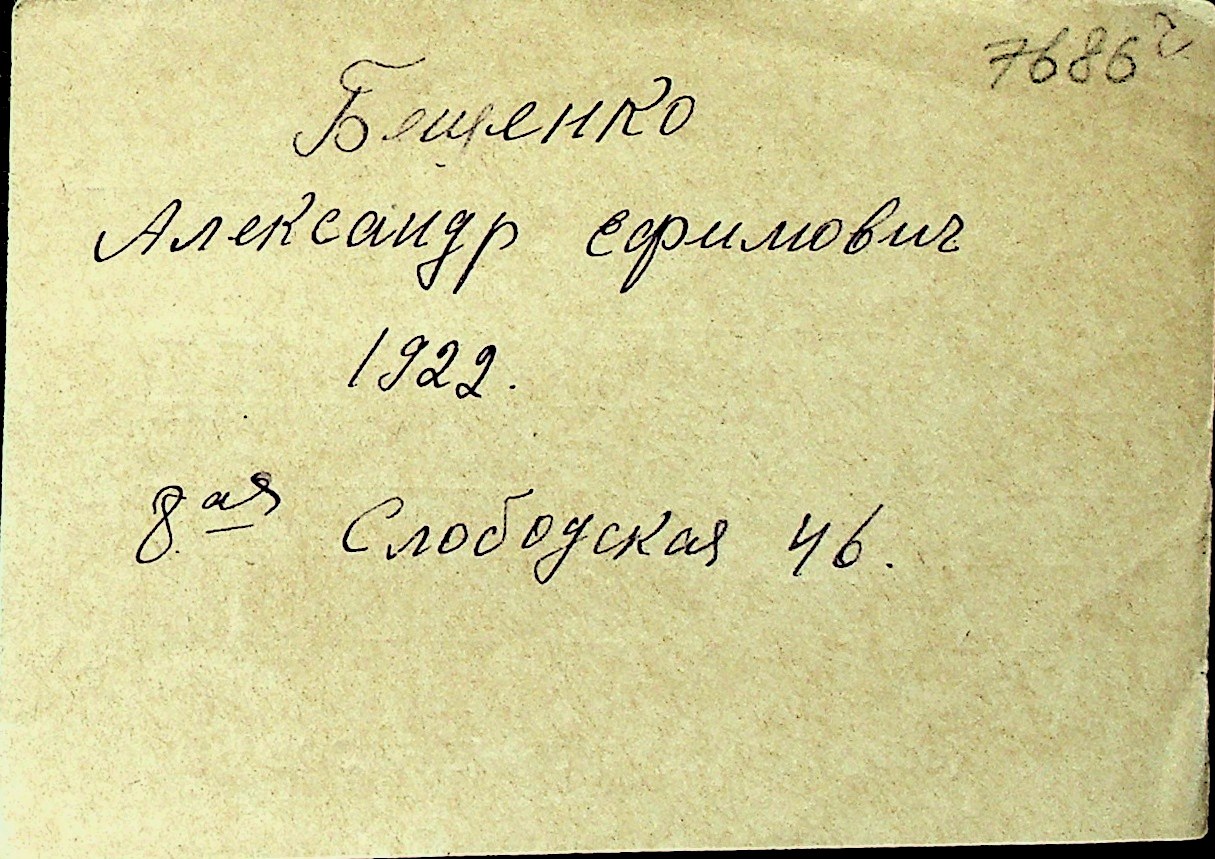 7686
Бещенко
Александр Ефимович
1922.
8ая Слободская 46.